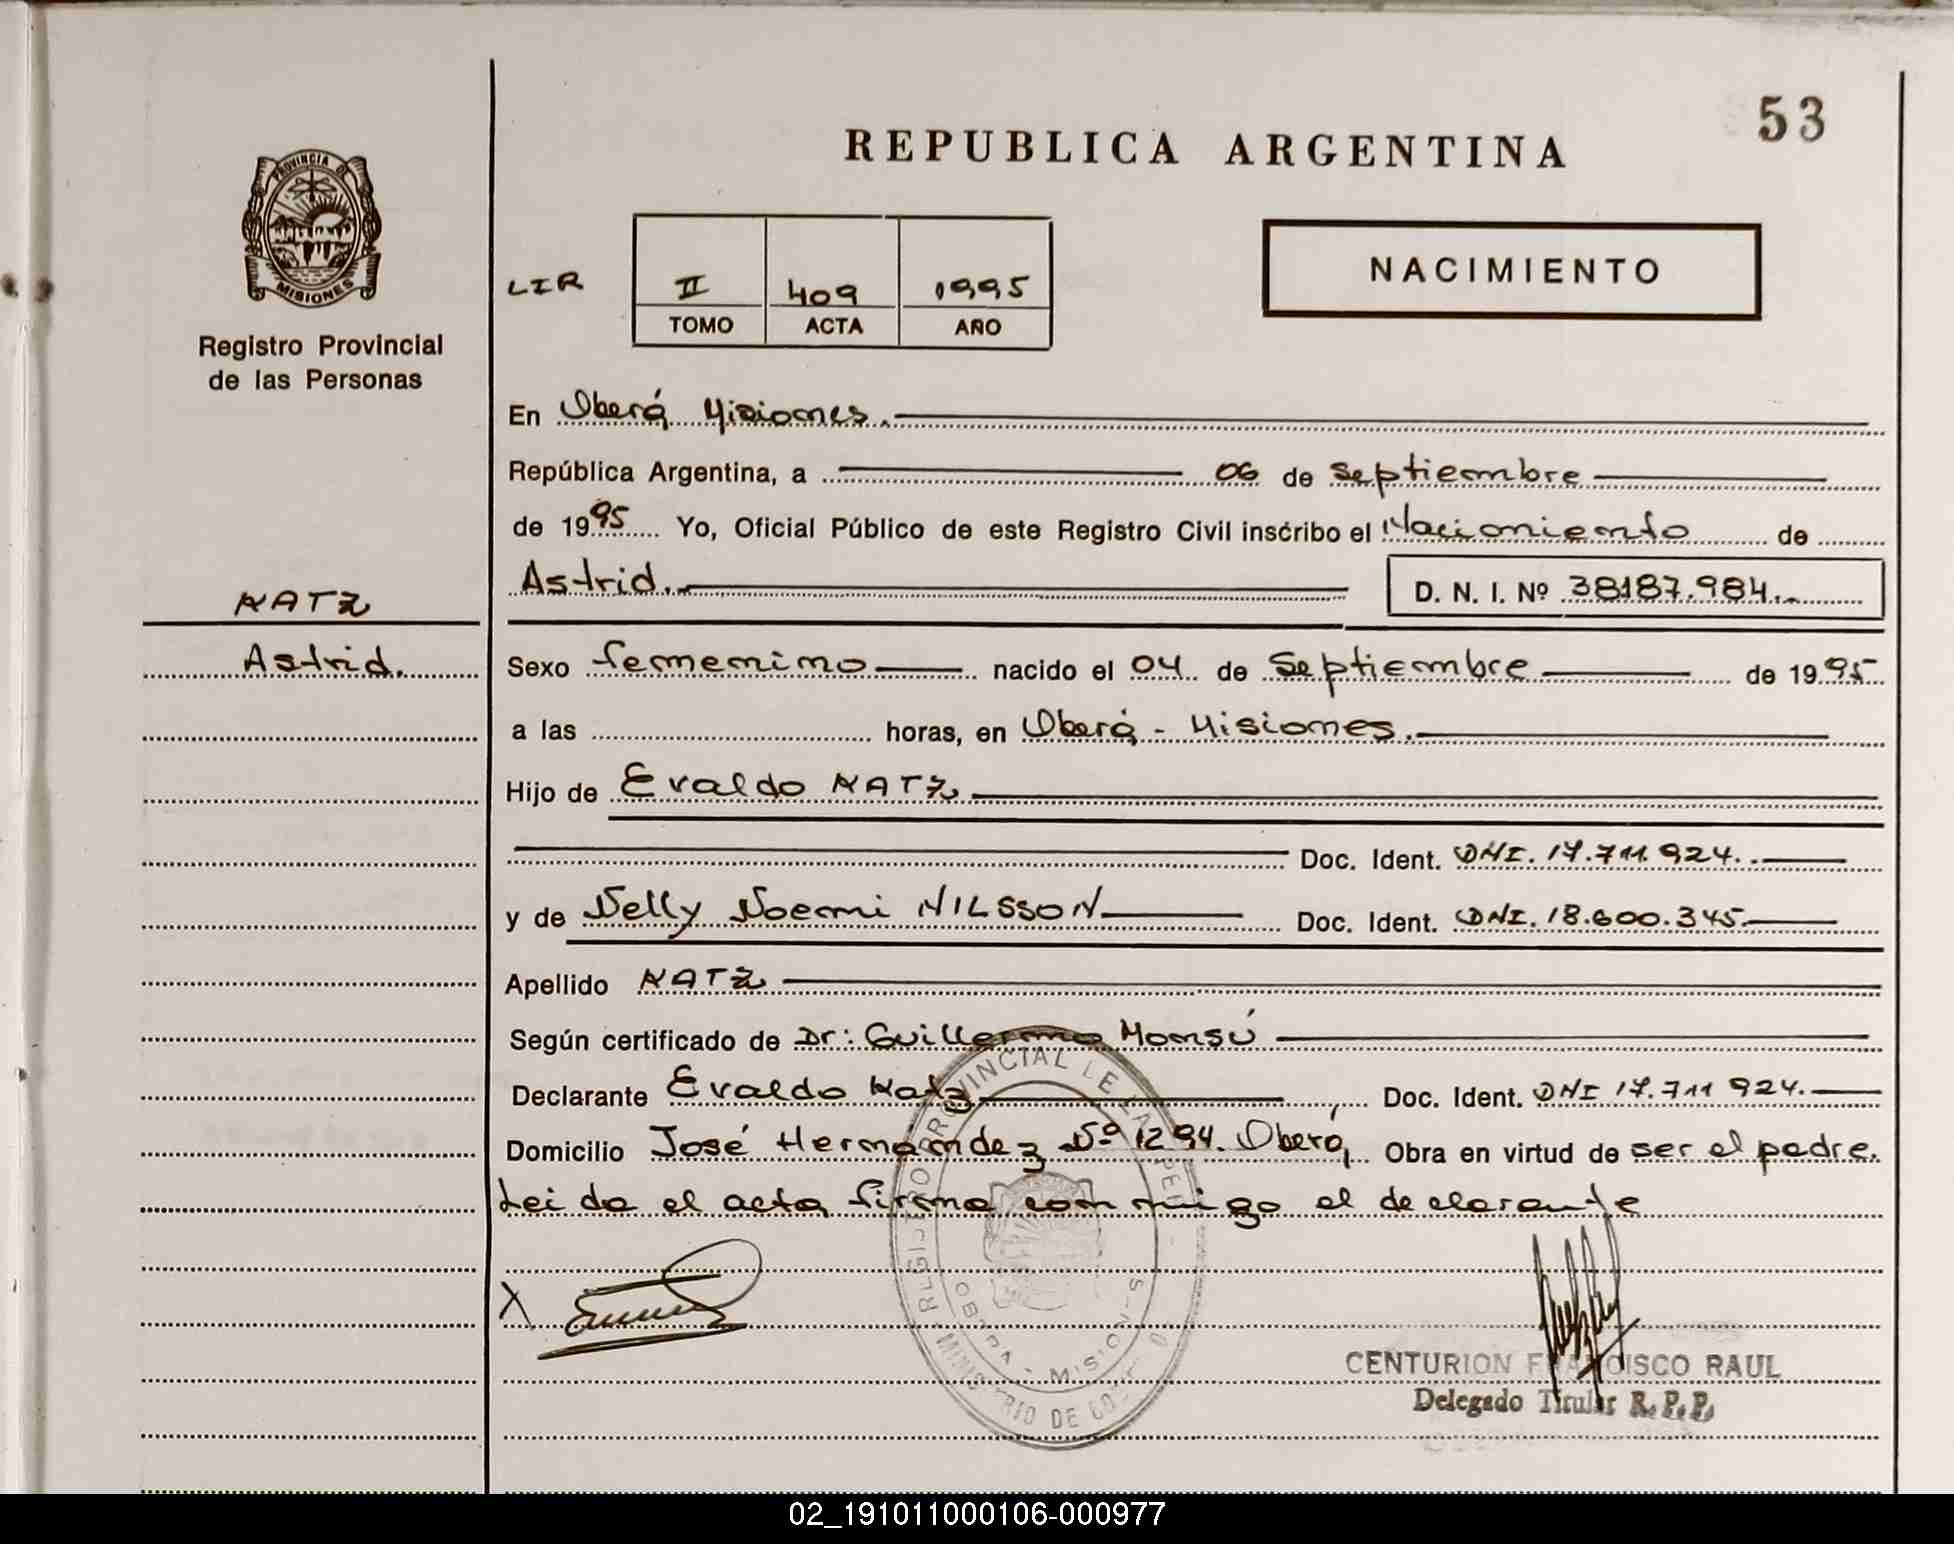 53
REPUBLICA ARGENTINA
PROVINCIA DE
MISIONES
Registro Provincial
de las Personas
NACIMIENTO
LIR II 409 1995
TOMO ACTA AÑO
En Oberá Misiones.
República Argentina, a 06 de Septiembre
de 1995 Yo, Oficial Público de este Registro Civil inscribo el Nacimiento de
Astrid. D. N. I. Nº 38187.984.
KATZ
Astrid.
Sexo femenino nacido el 04 de Septiembre de 1995
a las horas, en Oberá - Misiones.
Hijo de Evaldo KATZ
Doc. Ident. DNI. 17.711.924.
y de Nelly Noemi NILSSON Doc. Ident. DNI. 18.600.345
Apellido KATZ
Según certificado de Dr: Guillermo Monsú
Declarante Evaldo Katz Doc. Ident. DNI 17.711 924.
Domicilio José Hernandez Nº 1294. Oberá, Obra en virtud de ser el padre.
Leida el acta firma conmigo el declarante
X
REGISTRO PROVINCIAL DE LAS PER
OBERA - MISIONES
MINISTERIO DE GOB
CENTURION FRANCISCO RAUL
Delegado Titular R. P. P.
02_191011000106-000977